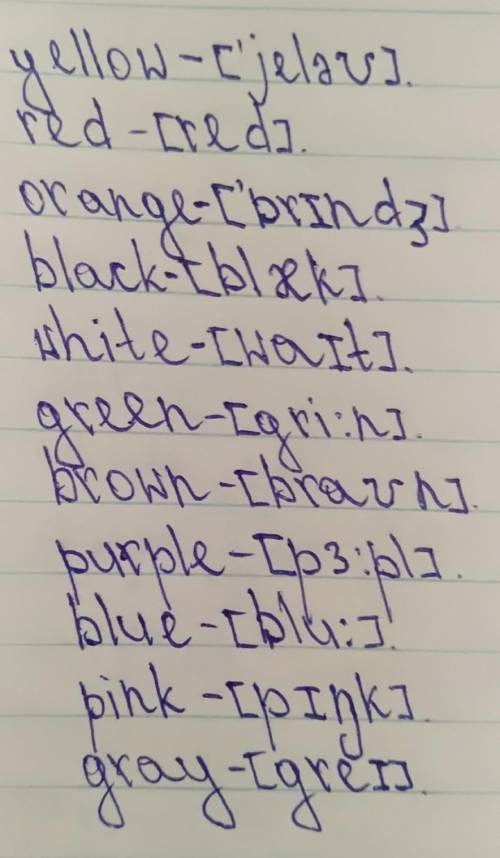 yellow-['jeləʊ].
red-[red].
orange-['ɒrɪndʒ]
black-[blæk].
white-[waɪt].
green-[gri:n].
brown-[braʊn].
purple-[pɜ:pl].
blue-[blu:].
pink-[pɪŋk].
gray-[greɪ].